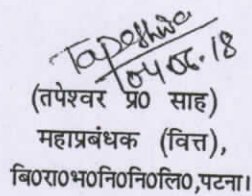 Tapeshwar
04.06.18
(तपेश्वर प्र० साह)
महाप्रबंधक (वित्त),
बि०रा०भ०नि०नि०लि०,पटना।